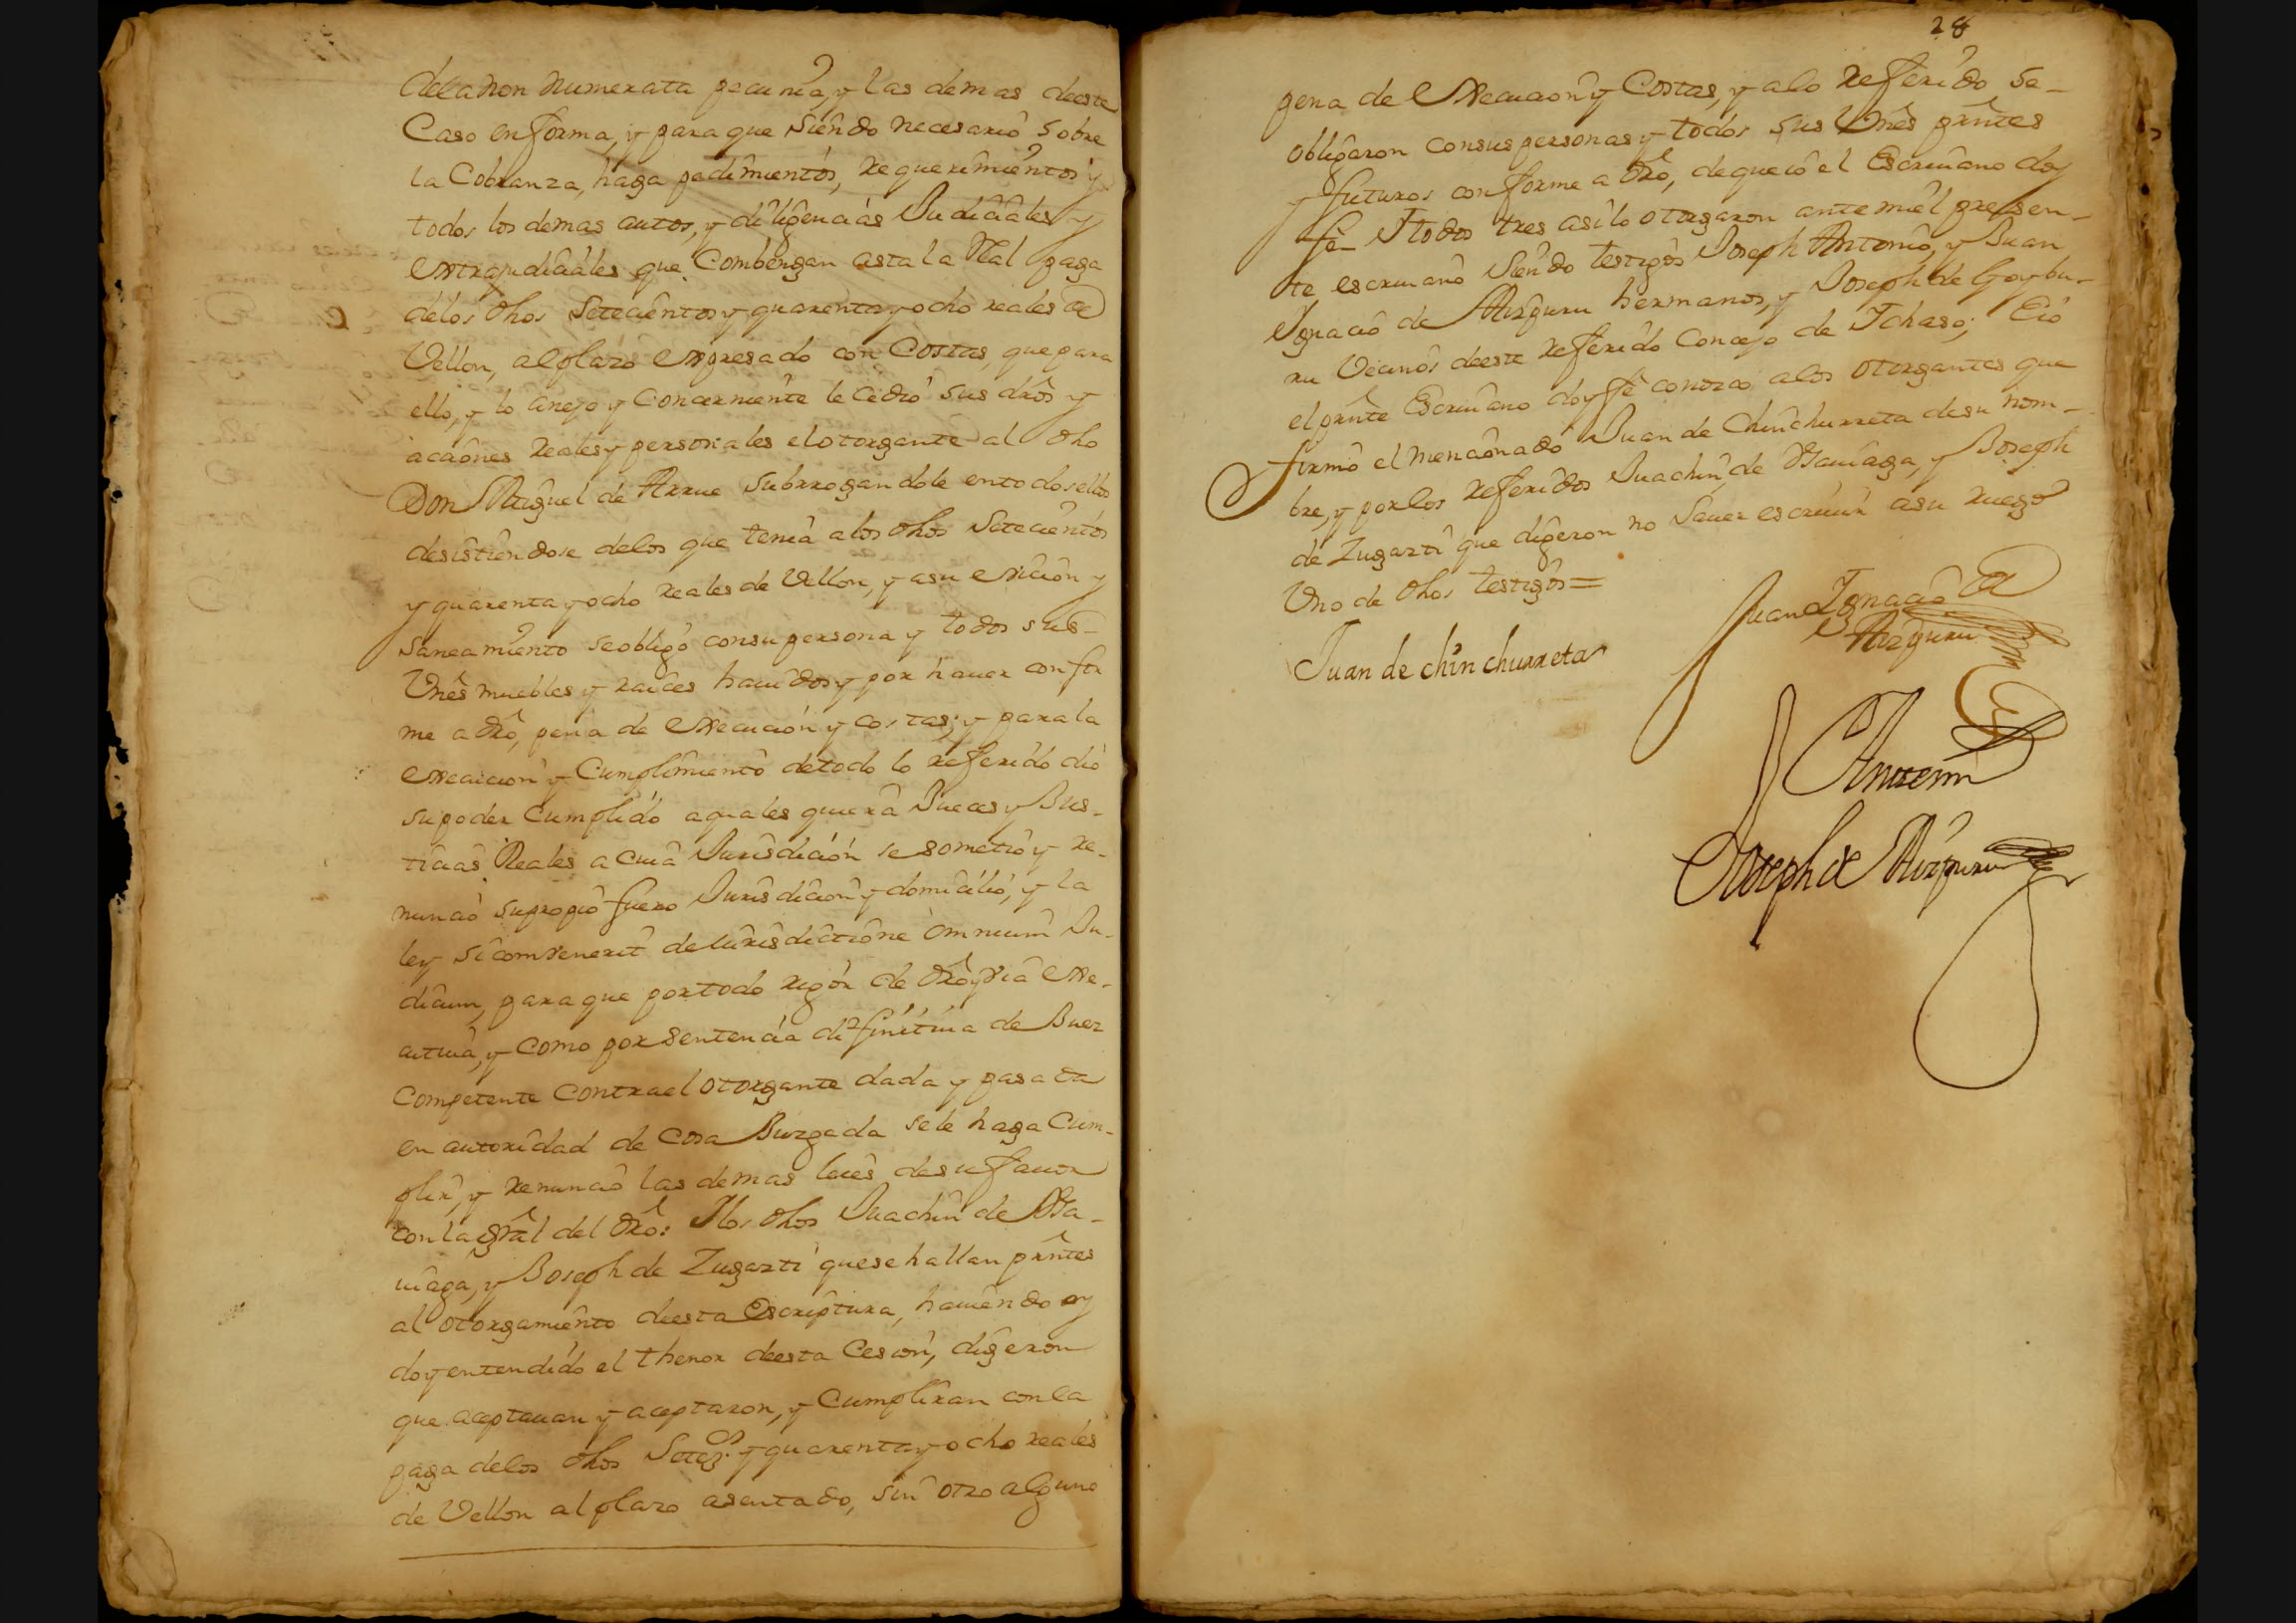 dela non numerata pecunia, y las demas deeste
Caso en forma, y para que siendo necesario sobre
la Cobranza, haga pedimientos, requerimientos y
todos los demas autos, y diligencias Judiciales y
extrajudiciales que Combengan asta la Real paga
delos dhos Setecientos y quarenta y ocho reales de
Vellon, al plazo expresado con Costas, que para
ello, y lo anejo y Concerniente le cedio sus drôs y
acciônes reales y personales el otorgante al dho
Don Miguel de Arrue Subrrogandole en todos ellos
desistiendose delos que tenia a los dhos Setecientos
y quarenta y ocho reales de Vellon, y a su evicion y
saneamiento se obligó con su persona y todos sus
Vnês muebles y raices hauidos y por hauer confor
me a drô, pena de execucion y costas; y para la
execucion y Cumplimiento de todo lo referido dio
su poder Cumplido a quales quiera Jueces y Jus-
ticias Reales a cuia Jurisdicion se sometio y re-
nuncio su propio fuero Jurisdicion y domicilio, y la
ley si combenerit de Iurisdictione omnium Ju-
dicum, para que por todo rigor de drô y via exe-
cutiua, y como por sentencia difinitiua de Juez
Competente contra el otorgante dada y pasada
en autoridad de Cosa Juzgada se le haga Cum-
plir, y renuncio las demas leies de su fauor
con la grâl del drô: Ylos dhos Juachin de
uiaga, y Joseph de Zugazti que se hallan prntes
al otorgamiento deesta escriptura, hauiendo oy
do y entendido el thenor deesta Cesion, digeron
que aceptauan y aceptaron, y Cumpliran con la
paga delos dhos Setezs y quarenta y ocho reales
de Vellon al plazo asentado, sin otro alguno
28
pena de execucion y Costas, y alo referido se
obligaron con sus personas y todos sus Vnês prntes
y futuros conforme a drô, de que io el Escriuano doy
fe- Y todos tres asi lo otorgaron ante mi el presen-
te escriuano siendo testigos Joseph Antonio, y Juan
Ygnacio de Aizpuru hermanos, y Joseph de Goybu-
ru Vecinos deeste referido Concejo de Ychaso; E io
el prnte Escriuano doy fe conozco alos otorgantes que
firmo el mencionado Juan de Chinchurreta de su nom-
bre, y por los referidos Juachin de y Joseph
de Zugazti que digeron no Sauer escriuir a su ruego
Vno de dhos testigos=
Juan de chinchurreta
Juan Ygnacio de
Aizpuru
Ante mi
Joseph de Aizpuru